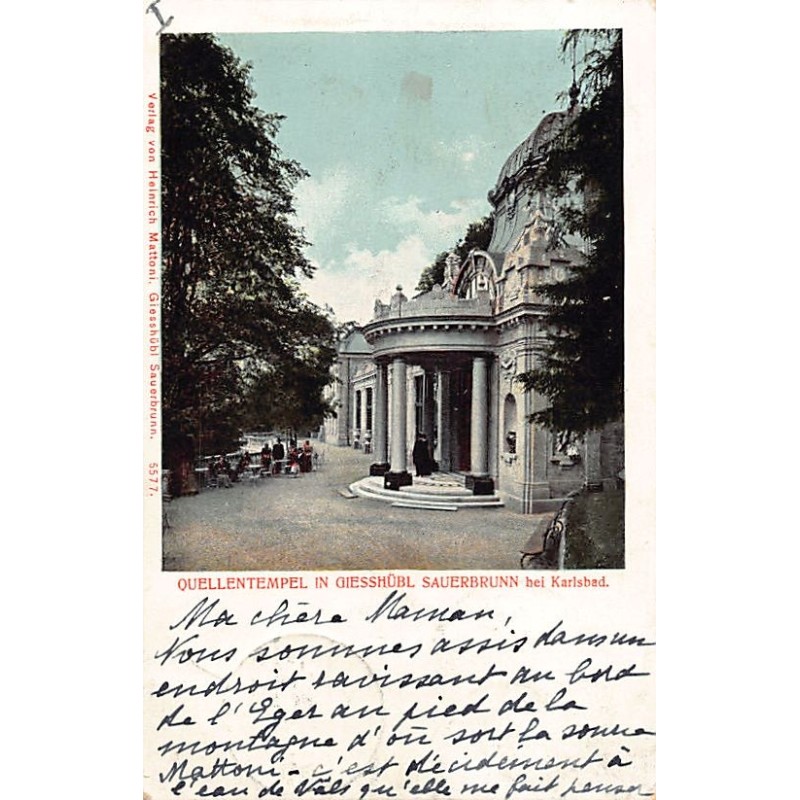 I
Verlag von Heinrich Mattoni, Giesshübl Sauerbrunn. 5577.
QUELLENTEMPEL IN GIESSHÜBL SAUERBRUNN bei Karlsbad.
Ma chère Maman,
Nous sommes assis dans un
endroit ravissant au bord
de l'Eger au pied de la
montagne d'où sort la source
Mattoni - c'est décidement à
l'eau de Vals qu'elle me fait penser